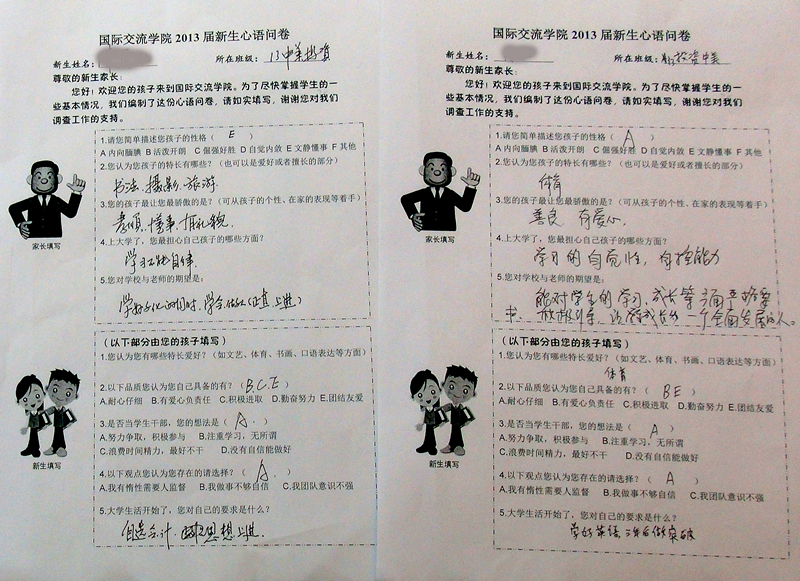 国际交流学院 2013 届新生心语问卷
新生姓名: 所在班级: 13中美投资
尊敬的新生家长:
您好! 欢迎您的孩子来到国际交流学院。为了尽快掌握学生的一
些基本情况, 我们编制了这份心语问卷, 请如实填写, 谢谢您对我们
调查工作的支持。
1.请您简单描述您孩子的性格 ( E )
A 内向腼腆 B 活泼开朗 C 倔强好胜 D 自觉内敛 E 文静懂事 F 其他
2.您认为您孩子的特长有哪些? (也可以是爱好或者擅长的部分)
书法、摄影、旅游.
3.您的孩子最让您最骄傲的是? (可从孩子的个性、在家的表现等着手)
孝顺、懂事、有礼貌.
4.上大学了, 您最担心自己孩子的哪些方面?
学习
5.您对学校与老师的期望是:
学好文化的同时、学会做人(正直 上进)
家长填写
(以下部分由您的孩子填写)
1.您认为您有哪些特长爱好? (如文艺、体育、书画、口语表达等方面)
2.以下品质您认为您自己具备的有? ( B C.E )
A.耐心仔细 B.有爱心负责任 C.积极进取 D.勤奋努力 E.团结友爱
3.是否当学生干部, 您的想法是 ( A. )
A.努力争取, 积极参与 B.注重学习, 无所谓
C.浪费时间精力, 最好不干 D.没有自信能做好
4.以下观点您认为您存在的请选择? ( A. )
A.我有惰性需要人监督 B.我做事不够自信 C.我团队意识不强
5.大学生活开始了, 您对自己的要求是什么?
思想上进.
新生填写
国际交流学院 2013 届新生心语问卷
新生姓名: 所在班级: 投资中美
尊敬的新生家长:
您好! 欢迎您的孩子来到国际交流学院。为了尽快掌握学生的一
些基本情况, 我们编制了这份心语问卷, 请如实填写, 谢谢您对我们
调查工作的支持。
1.请您简单描述您孩子的性格 ( A )
A 内向腼腆 B 活泼开朗 C 倔强好胜 D 自觉内敛 E 文静懂事 F 其他
2.您认为您孩子的特长有哪些? (也可以是爱好或者擅长的部分)
体育
3.您的孩子最让您最骄傲的是? (可从孩子的个性、在家的表现等着手)
善良 有爱心.
4.上大学了, 您最担心自己孩子的哪些方面?
学习的自觉性, 自控能力
5.您对学校与老师的期望是:
能对学生的学习、成长等方面严格要
求、 一个全面发展的人。
家长填写
(以下部分由您的孩子填写)
1.您认为您有哪些特长爱好? (如文艺、体育、书画、口语表达等方面)
体育
2.以下品质您认为您自己具备的有? ( BE )
A.耐心仔细 B.有爱心负责任 C.积极进取 D.勤奋努力 E.团结友爱
3.是否当学生干部, 您的想法是 ( A )
A.努力争取, 积极参与 B.注重学习, 无所谓
C.浪费时间精力, 最好不干 D.没有自信能做好
4.以下观点您认为您存在的请选择? ( A )
A.我有惰性需要人监督 B.我做事不够自信 C.我团队意识不强
5.大学生活开始了, 您对自己的要求是什么?
学好英语,
新生填写